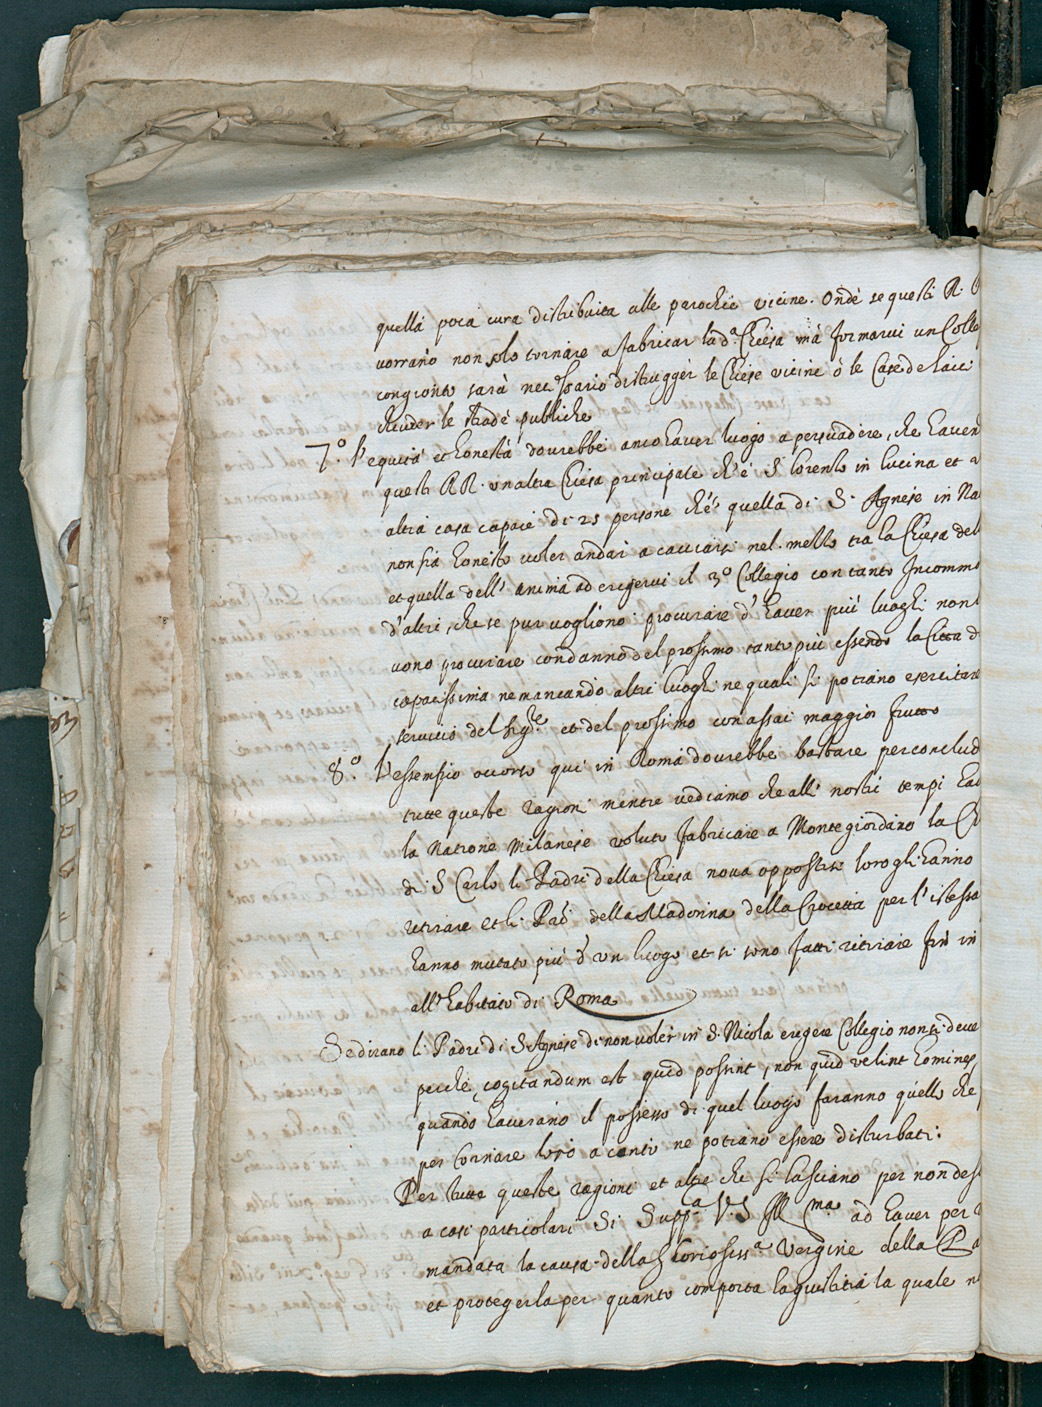 quella poca cura distribuita alle parochie vicine. Onde se questi R.
vorrano non solo tornare a fabricar la d.ª Chiesa mà formarvi un Colle
congionto sarà necessario distrugger le Chiese vicine ò le Case de laici
chiuder le strade publiche
7.º L'equità et honestà dovrebbe anco haver luogo a persuadere, che haven
questi RR. un altra Chiesa principale ch'è S. Lorenzo in lucina et
altra casa capace di 25 persone ch'è quella di S. Agnese in Na
non sia honesto voler andar a cacciarsi nel mezzo tra la Chiesa del
et quella dell'anima ad eregervi il 3º Collegio con tanto Incommo
d'altri, che se pur vogliono procurare d'haver più luoghi non
vono procurare con danno del prossimo tanto più essendo la Città d
capacissima ne mancando altri luoghi ne quali si potrano esercitare
servitio del Sig.re et del prossimo con assai maggior frutto
8.º L'essempio occorso qui in Roma dovrebbe bastare per conclud
tutte queste ragioni mentre vediamo che alli nostri tempi ha
la Natione Milanese voluto fabricare a Monte giordano la Ch
di S Carlo li Padri della Chiesa nova oppostisi loro gli hanno
retirare et li Padri della Madonna della Crocetta per l'istessa
hanno mutato più d'un luogo et si sono fatti ritirare fin in
all'habitato di Roma
Se dirano li Padri di S Agnese di non voler in S. Nicola eregere Collegio non si deve
perche cogitandum est quid possint, non quid velint homines
quando haverano il possesso di quel luogo faranno quello che
per tornare loro a conto ne potrano essere disturbati.
Per tutte queste ragioni et altre che si lasciano per non des
a casi particolari Si Supp.ca V.S Ill.ma ad haver per
mandata la causa della gloriosiss.ª Vergine della Pa
et protegerla per quanto comporta la giustitia la quale n